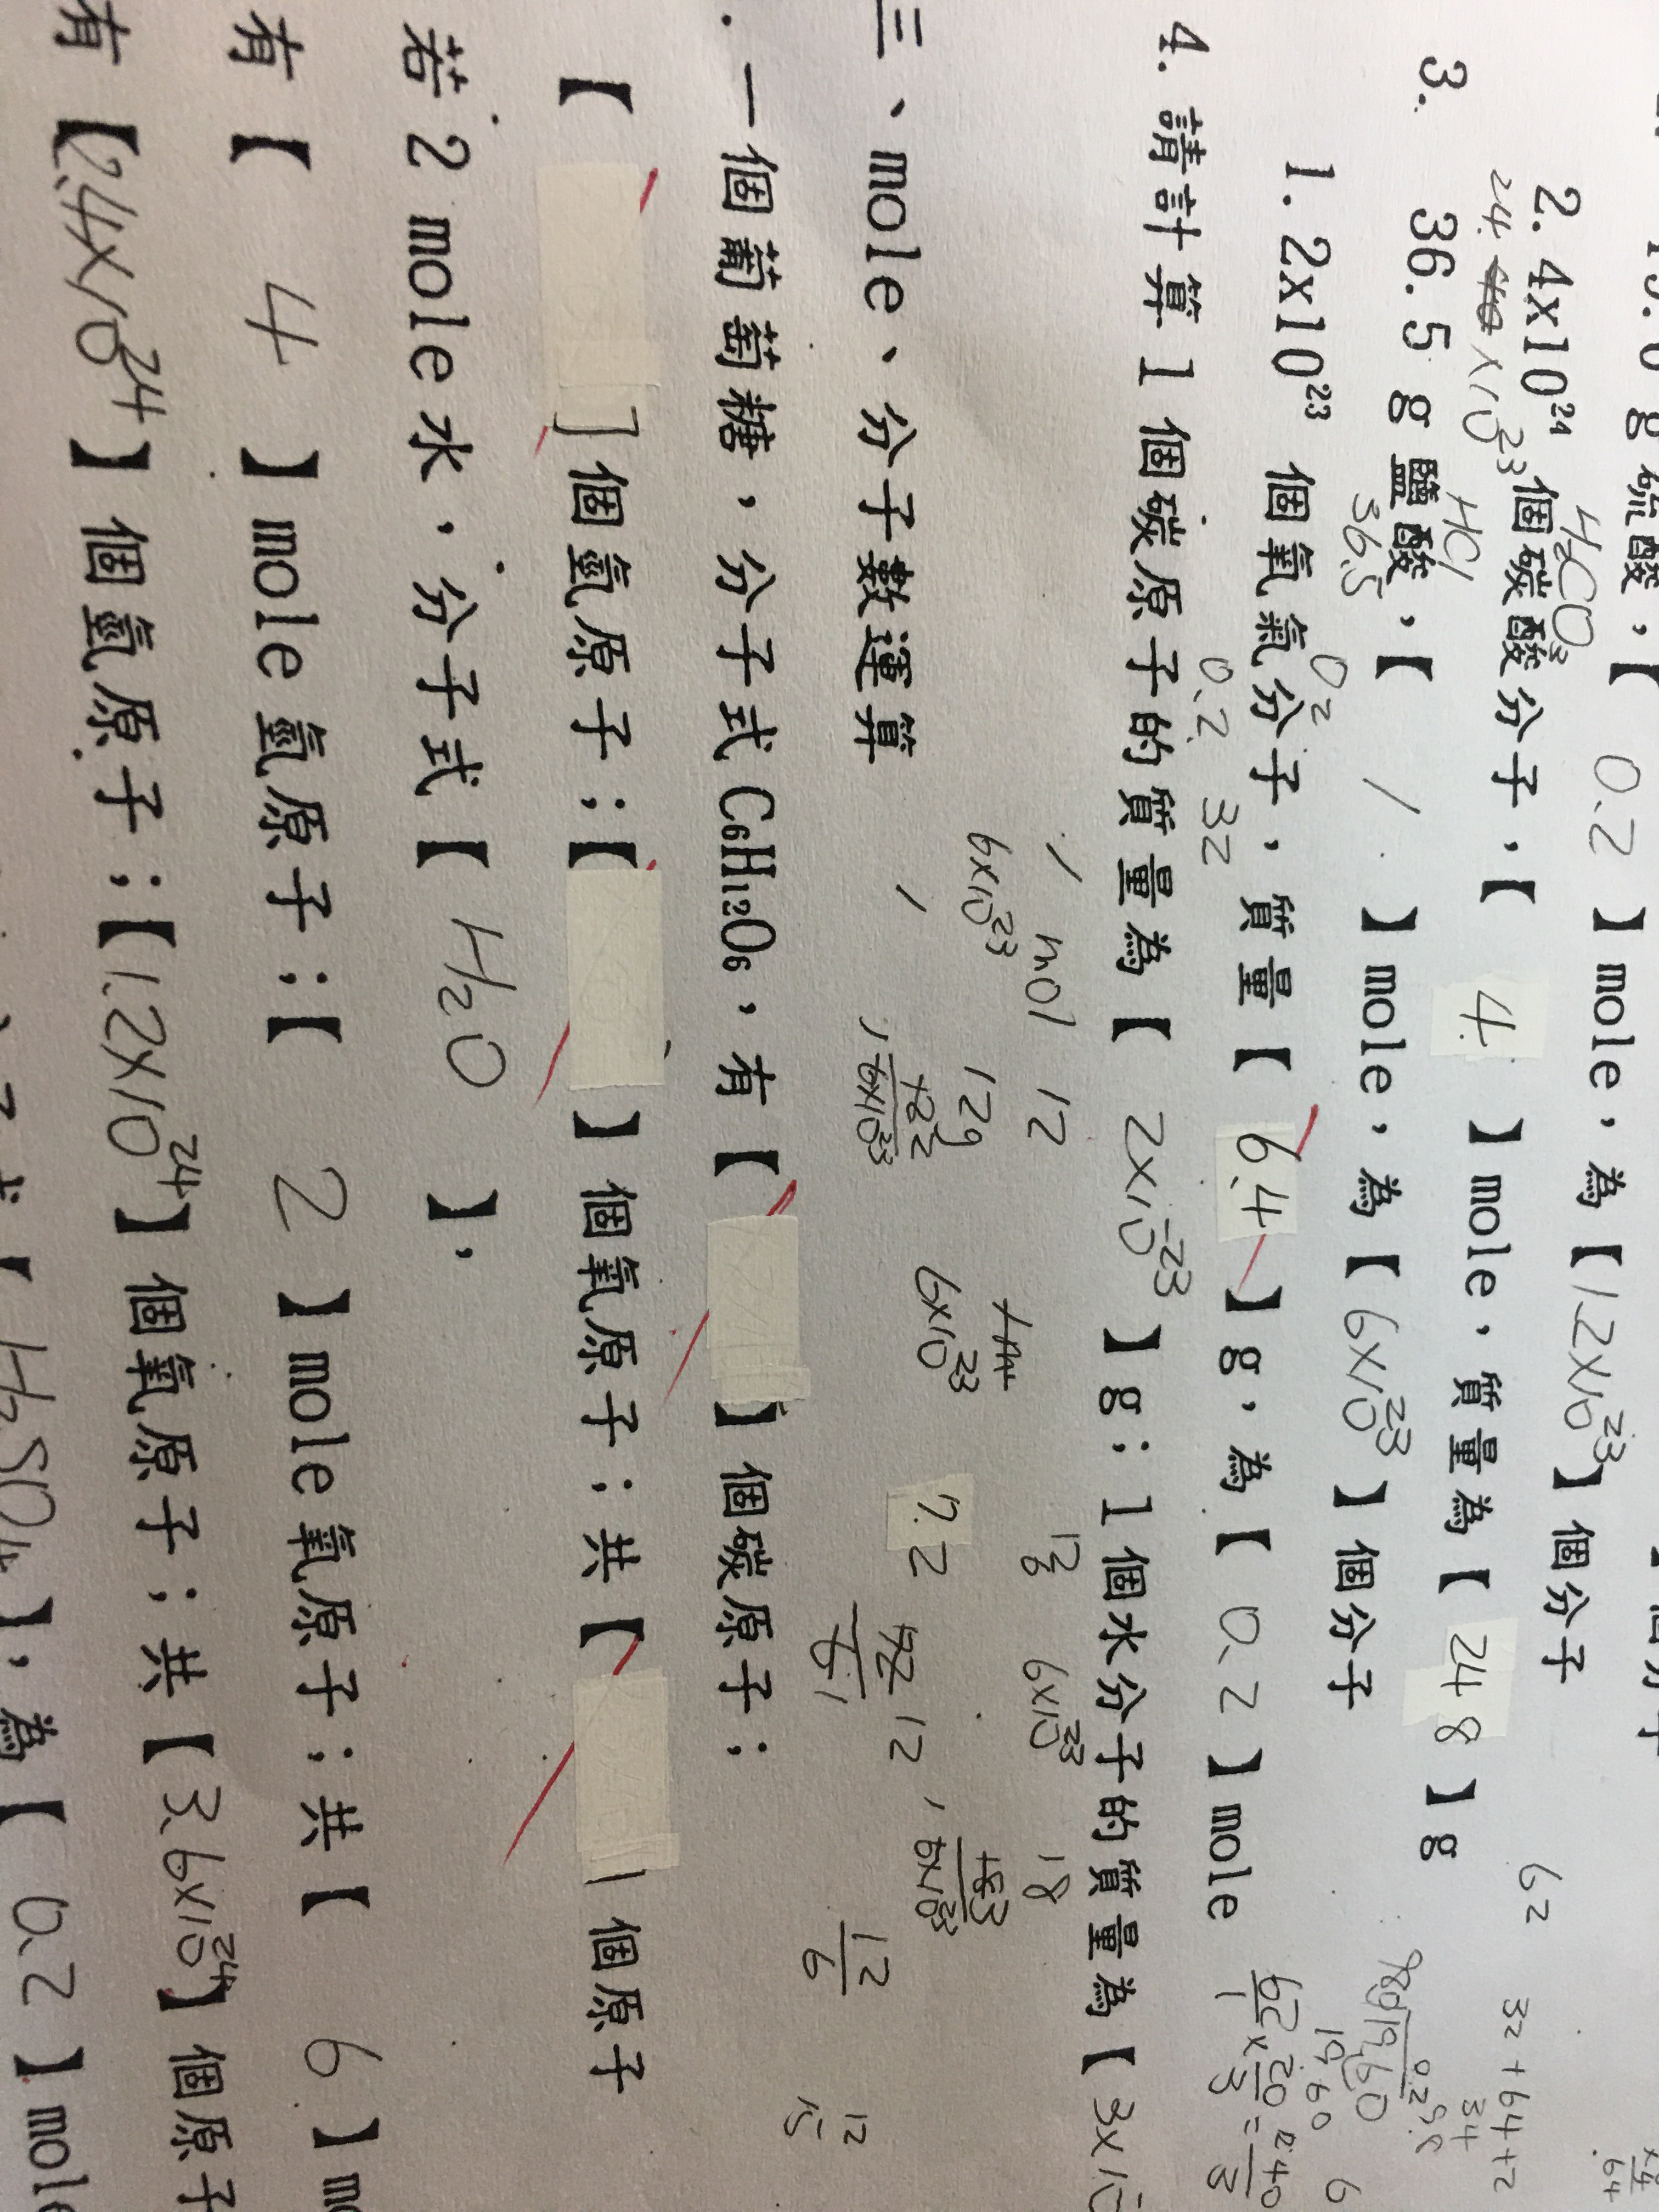 19.6 g 硫酸，【 0.2 】mole，為【1.2x10²³】個分子
H₂CO₃
2. 4x10²⁴ 個碳酸分子，【 4 】mole，質量為【 248 】g
24 x10²³
62
32+64+2
HCl
3. 36.5 g 鹽酸，【 1 】mole，為【6x10²³】個分子
36.5
O₂
1. 2x10²³ 個氧氣分子，質量【 6.4 】g，為【 0.2 】mole
0.2 32
4. 請計算 1 個碳原子的質量為【 2x10⁻²³ 】g；1 個水分子的質量為【 3x10
1 mol 12
6x10²³ 12g
6x10²³
7.2
6x10²³ 18
三、mole、分子數運算
12
6
一個葡萄糖，分子式 C₆H₁₂O₆，有【 】個碳原子；
【 】個氫原子；【 】個氧原子；共【 】個原子
若 2 mole 水，分子式【 H₂O 】，
有【 4 】mole 氫原子；【 2 】mole 氧原子；共【 6 】m
有【2.4x10²⁴】個氫原子；【1.2x10²⁴】個氧原子；共【3.6x10²⁴】個原子
【 H₂SO₄】，為【 0.2 】mole